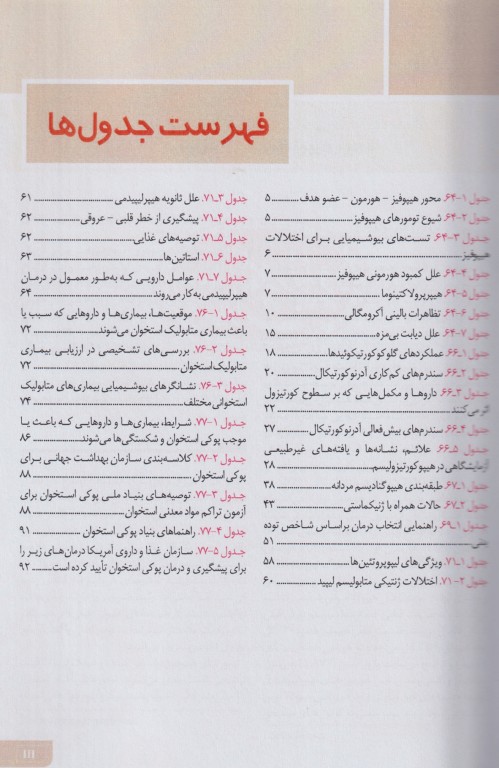 فهرست جدول‌ها
جدول ۱-۶۴. محور هیپوفیز - هورمون - عضو هدف ............ ۵
جدول ۲-۶۴. شیوع تومورهای هیپوفیز ............ ۵
جدول ۳-۶۴. تست‌های بیوشیمیایی برای اختلالات
هیپوفیز ............ ۶
جدول ۴-۶۴. علل کمبود هورمونی هیپوفیز ............ ۷
جدول ۵-۶۴. هیپرپرولاکتینوما ............ ۷
جدول ۶-۶۴. تظاهرات بالینی آکرومگالی ............ ۱۰
جدول ۷-۶۴. علل دیابت بی‌مزه ............ ۱۵
جدول ۱ـ۶۶. عملکردهای گلوکوکورتیکوئیدها ............ ۱۸
جدول ۲ـ۶۶. سندرم‌های کم‌کاری آدرنوکورتیکال ............ ۲۰
جدول ۳ـ۶۶. داروها و مکمل‌هایی که بر سطوح کورتیزول
اثر می‌کنند ............ ۲۲
جدول ۴ـ۶۶. سندرم‌های بیش‌فعالی آدرنوکورتیکال ............ ۲۷
جدول ۵ـ۶۶. علائم، نشانه‌ها و یافته‌های غیرطبیعی
آزمایشگاهی در هیپوکورتیزولیسم ............ ۲۸
جدول ۱ـ۶۷. طبقه‌بندی هیپوگنادیسم مردانه ............ ۳۸
جدول ۲ـ۶۷. حالات همراه با ژنیکماستی ............ ۴۳
جدول ۱ـ۶۹. راهنمایی انتخاب درمان براساس شاخص توده
بدنی ............ ۵۱
جدول ۱ـ۷۱. ویژگی‌های لیپوپروتئین‌ها ............ ۵۸
جدول ۲-۷۱. اختلالات ژنتیکی متابولیسم لیپید ............ ۶۰
جدول ۳ـ۷۱. علل ثانویه هیپرلیپیدمی ............ ۶۱
جدول ۴ـ۷۱. پیشگیری از خطر قلبی - عروقی ............ ۶۲
جدول ۵ـ۷۱. توصیه‌های غذایی ............ ۶۲
جدول ۶ـ۷۱. استاتین‌ها ............ ۶۳
جدول ۷ـ۷۱. عوامل دارویی که به‌طور معمول در درمان
هیپرلیپیدمی به کار می‌روند ............ ۶۴
جدول ۱-۷۶. موقعیت‌ها، بیماری‌ها و داروهایی که سبب یا
باعث بیماری متابولیک استخوان می‌شوند ............ ۷۲
جدول ۲-۷۶. بررسی‌های تشخیصی در ارزیابی بیماری
متابولیک استخوان ............ ۷۲
جدول ۳-۷۶. نشانگرهای بیوشیمیایی بیماری‌های متابولیک
استخوانی مختلف ............ ۷۴
جدول ۱-۷۷. شرایط، بیماری‌ها و داروهایی که باعث یا
موجب پوکی استخوان و شکستگی‌ها می‌شوند ............ ۸۶
جدول ۲-۷۷. کلاسه‌بندی سازمان بهداشت جهانی برای
پوکی استخوان ............ ۸۸
جدول ۳-۷۷. توصیه‌های بنیاد ملی پوکی استخوان برای
آزمون تراکم مواد معدنی استخوان ............ ۸۸
جدول ۴-۷۷. راهنماهای بنیاد پوکی استخوان ............ ۹۱
جدول ۵-۷۷. سازمان غذا و داروی آمریکا درمان‌های زیر را
برای پیشگیری و درمان پوکی استخوان تأیید کرده است ............ ۹۲
III